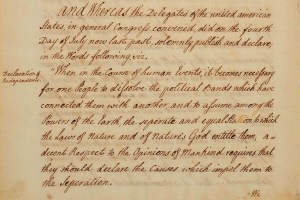 and Whereas the Delegates of the united american
States, in general Congress convened, did on the fourth
Day of July now last past, solemnly publish and declare,
in the Words following, viz.
Declaration of
Independence.
When in the Course of human Events, it becomes necessary
for one People to dissolve the political Bands which have
connected them with another, and to assume among the
Powers of the Earth, the seperate and equal Station to which
the Laws of Nature and of Nature's God entitle them, a
decent Respect to the Opinions of Mankind requires that
they should declare the Causes which impel them to
the Seperation.
We